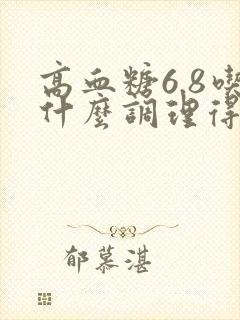 高血糖6.8喫
什麼調理得
郁慕湛